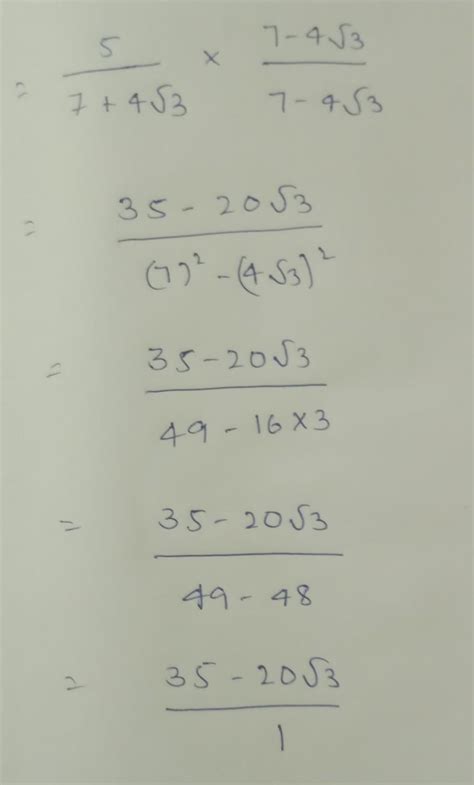 = 5/(7 + 4√3) × (7 - 4√3)/(7 - 4√3)
= (35 - 20√3)/((7)² - (4√3)²)
= (35 - 20√3)/(49 - 16×3)
= (35 - 20√3)/(49 - 48)
= (35 - 20√3)/1